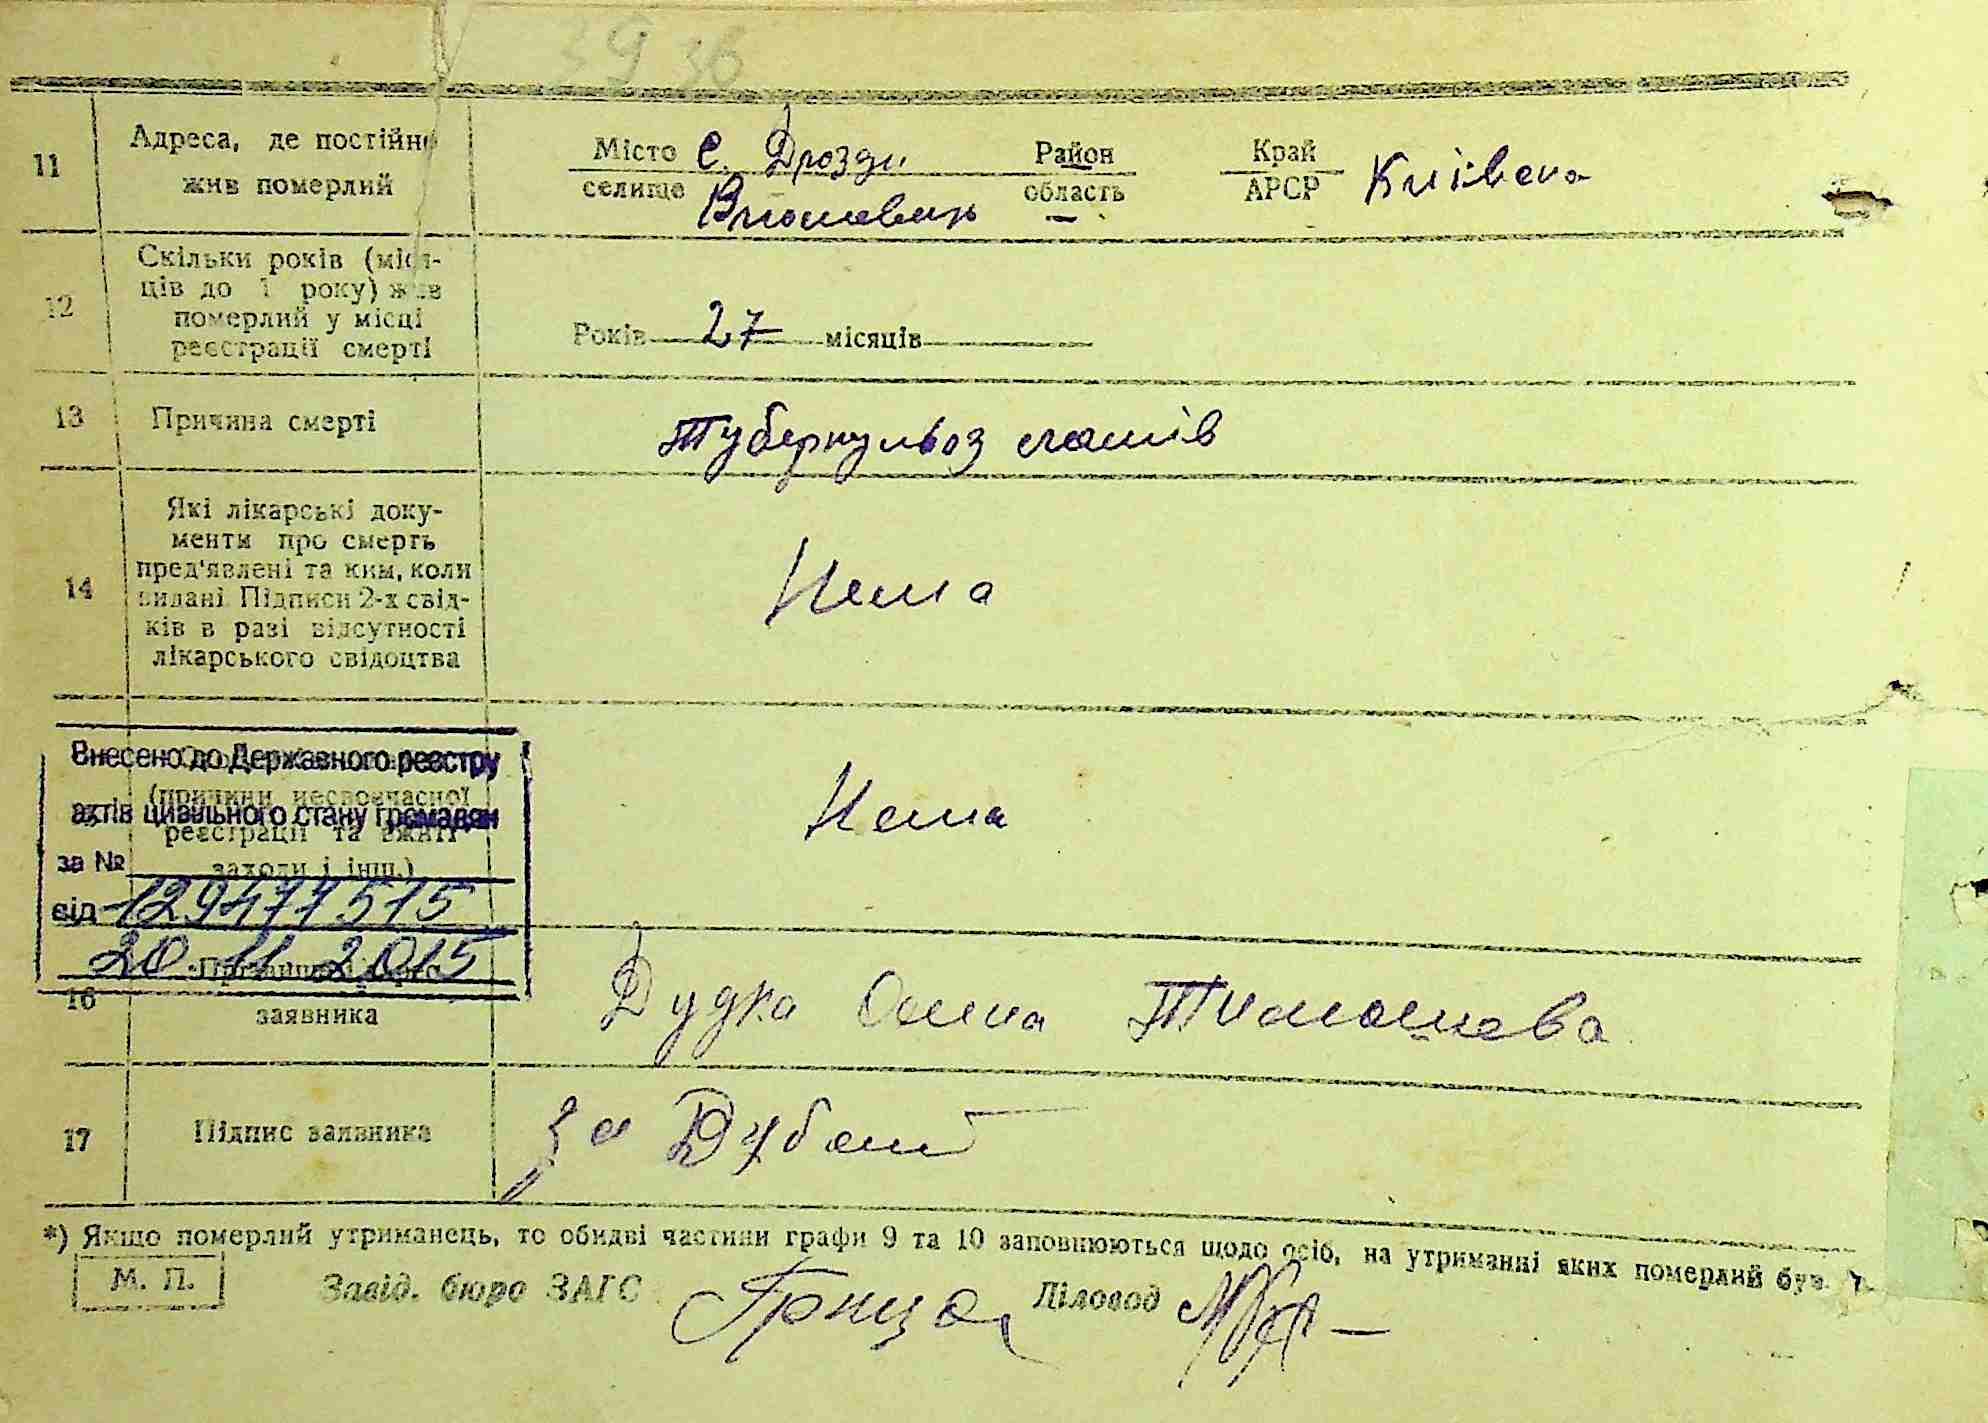 39 36
11
Адреса, де постійно
жив померлий
Місто с. Дрозди Район Край
селище область АРСР Київська
12
Скільки років (міся-
ців до 1 року) жив
померлий у місці
реєстрації смерті
Років 27 місяців
13 Причина смерті
Туберкульоз
14
Які лікарські доку-
менти про смерть
пред'явлені та ким, коли
видані. Підписи 2-х свід-
ків в разі відсутності
лікарського свідоцтва
Нема
Внесено до Державного реєстру
(причини несвоєчасної
актів цивільного стану громадян
реєстрації та вжиті
за №
заходи і інш.)
від 129477515
20 11 2015
Нема
16
заявника
Дудка
17 Підпис заявника
за
*) Якщо померлий утриманець, то обидві частини графи 9 та 10 заповнюються щодо осіб, на утриманні яких померлий був.
М. П. Завід. бюро ЗАГС Діловод